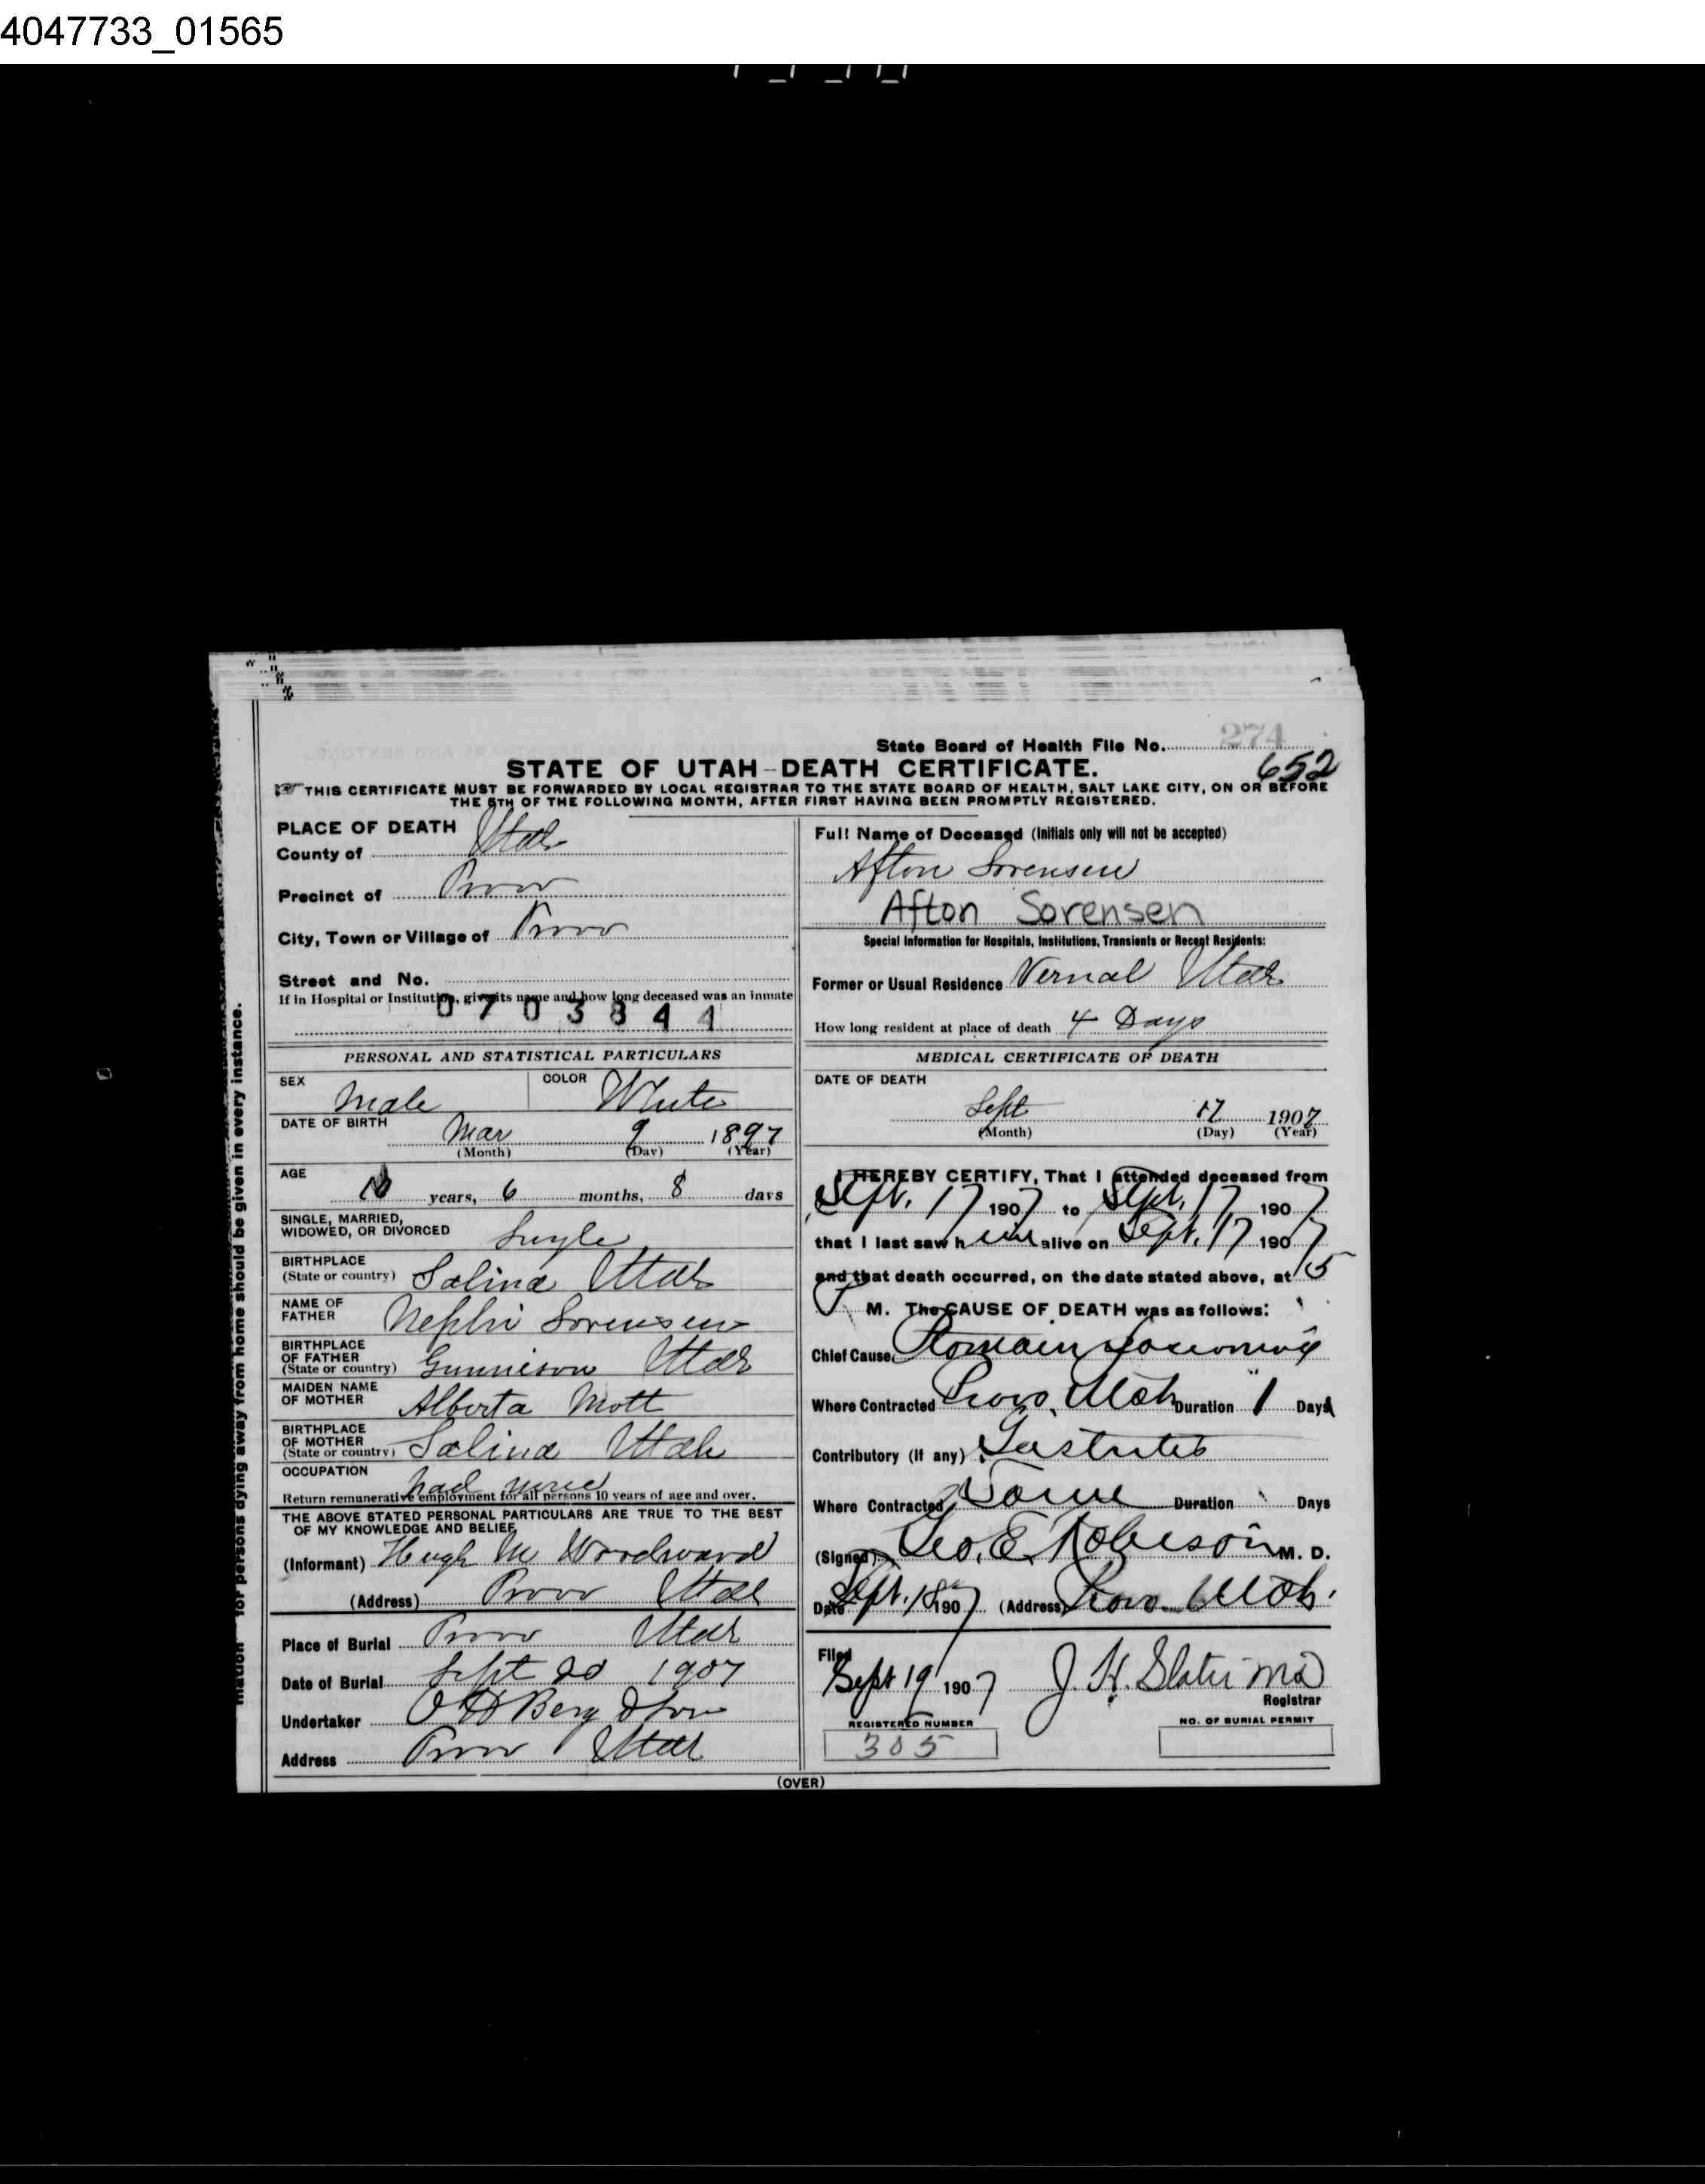 4047733_01565
State Board of Health File No. 274
652
STATE OF UTAH-DEATH CERTIFICATE.
THIS CERTIFICATE MUST BE FORWARDED BY LOCAL REGISTRAR TO THE STATE BOARD OF HEALTH, SALT LAKE CITY, ON OR BEFORE
THE 5TH OF THE FOLLOWING MONTH, AFTER FIRST HAVING BEEN PROMPTLY REGISTERED.
PLACE OF DEATH
County of Utah
Precinct of Provo
City, Town or Village of Provo
Street and No.
If in Hospital or Institution, give its name and how long deceased was an inmate
0703844
PERSONAL AND STATISTICAL PARTICULARS
SEX Male COLOR White
DATE OF BIRTH Mar 9 1897
(Month) (Day) (Year)
AGE 10 years, 6 months, 8 days
SINGLE, MARRIED,
WIDOWED, OR DIVORCED Single
BIRTHPLACE
(State or country) Salina Utah
NAME OF
FATHER Nephi Sorensen
BIRTHPLACE
OF FATHER
(State or country) Gunnison Utah
MAIDEN NAME
OF MOTHER Alberta Mott
BIRTHPLACE
OF MOTHER
(State or country) Salina Utah
OCCUPATION had none
Return remunerative employment for all persons 10 years of age and over.
THE ABOVE STATED PERSONAL PARTICULARS ARE TRUE TO THE BEST
OF MY KNOWLEDGE AND BELIEF
(Informant) Hugh M Woodward
(Address) Provo Utah
Place of Burial Provo Utah
Date of Burial Sept 20 1907
Undertaker O H Berg & Son
Address Provo Utah
Full Name of Deceased (Initials only will not be accepted)
Afton Sorensen
Afton Sorensen
Special Information for Hospitals, Institutions, Transients or Recent Residents:
Former or Usual Residence Vernal Utah
How long resident at place of death 4 Days
MEDICAL CERTIFICATE OF DEATH
DATE OF DEATH
Sept 17 1907
(Month) (Day) (Year)
I HEREBY CERTIFY, That I attended deceased from
Sept. 17 1907 to Sept. 17 1907
that I last saw him alive on Sept. 17 1907
and that death occurred, on the date stated above, at
P M. The CAUSE OF DEATH was as follows:
Chief Cause Ptomain poisoning
Where Contracted Provo, Utah Duration 1 Days
Contributory (if any) Gastritis
Where Contracted Same Duration " Days
(Signed) Geo. E. Robison M. D.
Date Sept. 18 1907 (Address) Provo Utah.
Filed
Sept 19 1907 J. H. Slater MD
Registrar
REGISTERED NUMBER
305
NO. OF BURIAL PERMIT
(OVER)
for persons dying away from home should be given in every instance.